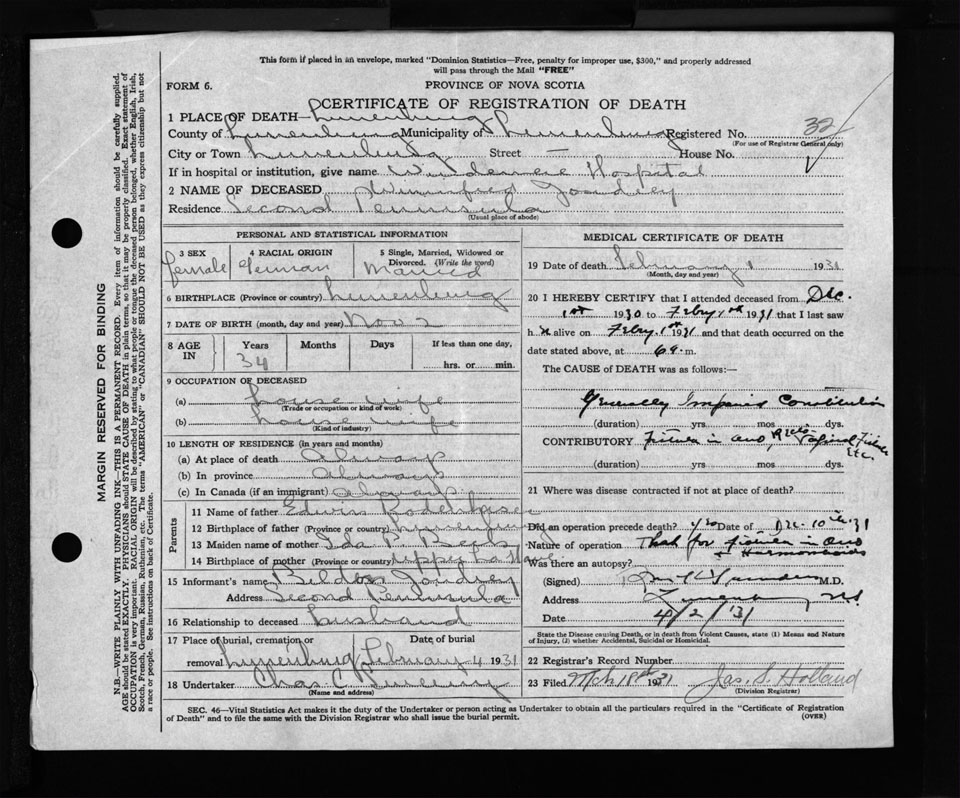 This form if placed in an envelope, marked "Dominion Statistics—Free, penalty for improper use, $300," and properly addressed
will pass through the Mail "FREE"
FORM 6.
PROVINCE OF NOVA SCOTIA
CERTIFICATE OF REGISTRATION OF DEATH
1 PLACE OF DEATH— Lunenburg
County of Lunenburg Municipality of Lunenburg Registered No. 32
(For use of Registrar General only)
City or Town Lunenburg Street — House No.
If in hospital or institution, give name Hospital
2 NAME OF DECEASED Winnifred Joudrey
Residence Second Peninsula
(Usual place of abode)
PERSONAL AND STATISTICAL INFORMATION
3 SEX 4 RACIAL ORIGIN 5 Single, Married, Widowed or Divorced. (Write the word)
female German Married
6 BIRTHPLACE (Province or country) Lunenburg
7 DATE OF BIRTH (month, day and year) Nov 2
8 AGE IN Years Months Days If less than one day,
34 hrs. or min.
9 OCCUPATION OF DECEASED
(a) house wife
(Trade or occupation or kind of work)
(b) house wife
(Kind of industry)
10 LENGTH OF RESIDENCE (in years and months)
(a) At place of death always
(b) In province always
(c) In Canada (if an immigrant) always
Parents
11 Name of father Edwin
12 Birthplace of father (Province or country) Lunenburg
13 Maiden name of mother Ida P
14 Birthplace of mother (Province or country) Upper LaHave
15 Informant's name Joudrey
Address Second Peninsula
16 Relationship to deceased husband
17 Place of burial, cremation or Date of burial
removal Lunenburg February 4 1931
18 Undertaker Chas C
(Name and address)
MEDICAL CERTIFICATE OF DEATH
19 Date of death February 1 1931
(Month, day and year)
20 I HEREBY CERTIFY that I attended deceased from Dec.
1st 1930 to Feby 1st 1931 that I last saw
h alive on Feby 1st 1931 and that death occurred on the
date stated above, at 6 a. m.
The CAUSE of DEATH was as follows:—
Generally Constitution
(duration) yrs mos dys.
CONTRIBUTORY Fistula in ano Etc
(duration) yrs mos dys.
21 Where was disease contracted if not at place of death?
Did an operation precede death? yes Date of Dec. 10th 31
Nature of operation That for fistula in ano
+ Haemorrhoids
Was there an autopsy?
(Signed) M.D.
Address Lunenburg N.S.
Date 4/2/31
State the Disease causing Death, or in death from Violent Causes, state (1) Means and Nature
of Injury, (2) whether Accidental, Suicidal or Homicidal.
22 Registrar's Record Number
23 Filed Mch 18th 1931 Jas. S. Holland
(Division Registrar)
SEC. 46—Vital Statistics Act makes it the duty of the Undertaker or person acting as Undertaker to obtain all the particulars required in the "Certificate of Registration
of Death" and to file the same with the Division Registrar who shall issue the burial permit.
(OVER)
MARGIN RESERVED FOR BINDING
N.B.—WRITE PLAINLY WITH UNFADING INK—THIS IS A PERMANENT RECORD. Every item of information should be carefully supplied.
AGE should be stated EXACTLY. PHYSICIANS should STATE CAUSE OF DEATH in plain terms, so that it may be properly classified. Exact statement of
OCCUPATION is very important. RACIAL ORIGIN will be described by stating to what people or tongue the deceased person belonged, whether English, Irish,
Scotch, French, German, Russian, Ruthenian, etc. The terms "AMERICAN" or "CANADIAN" SHOULD NOT BE USED as they express citizenship but not
a race or people. See instructions on back of Certificate.